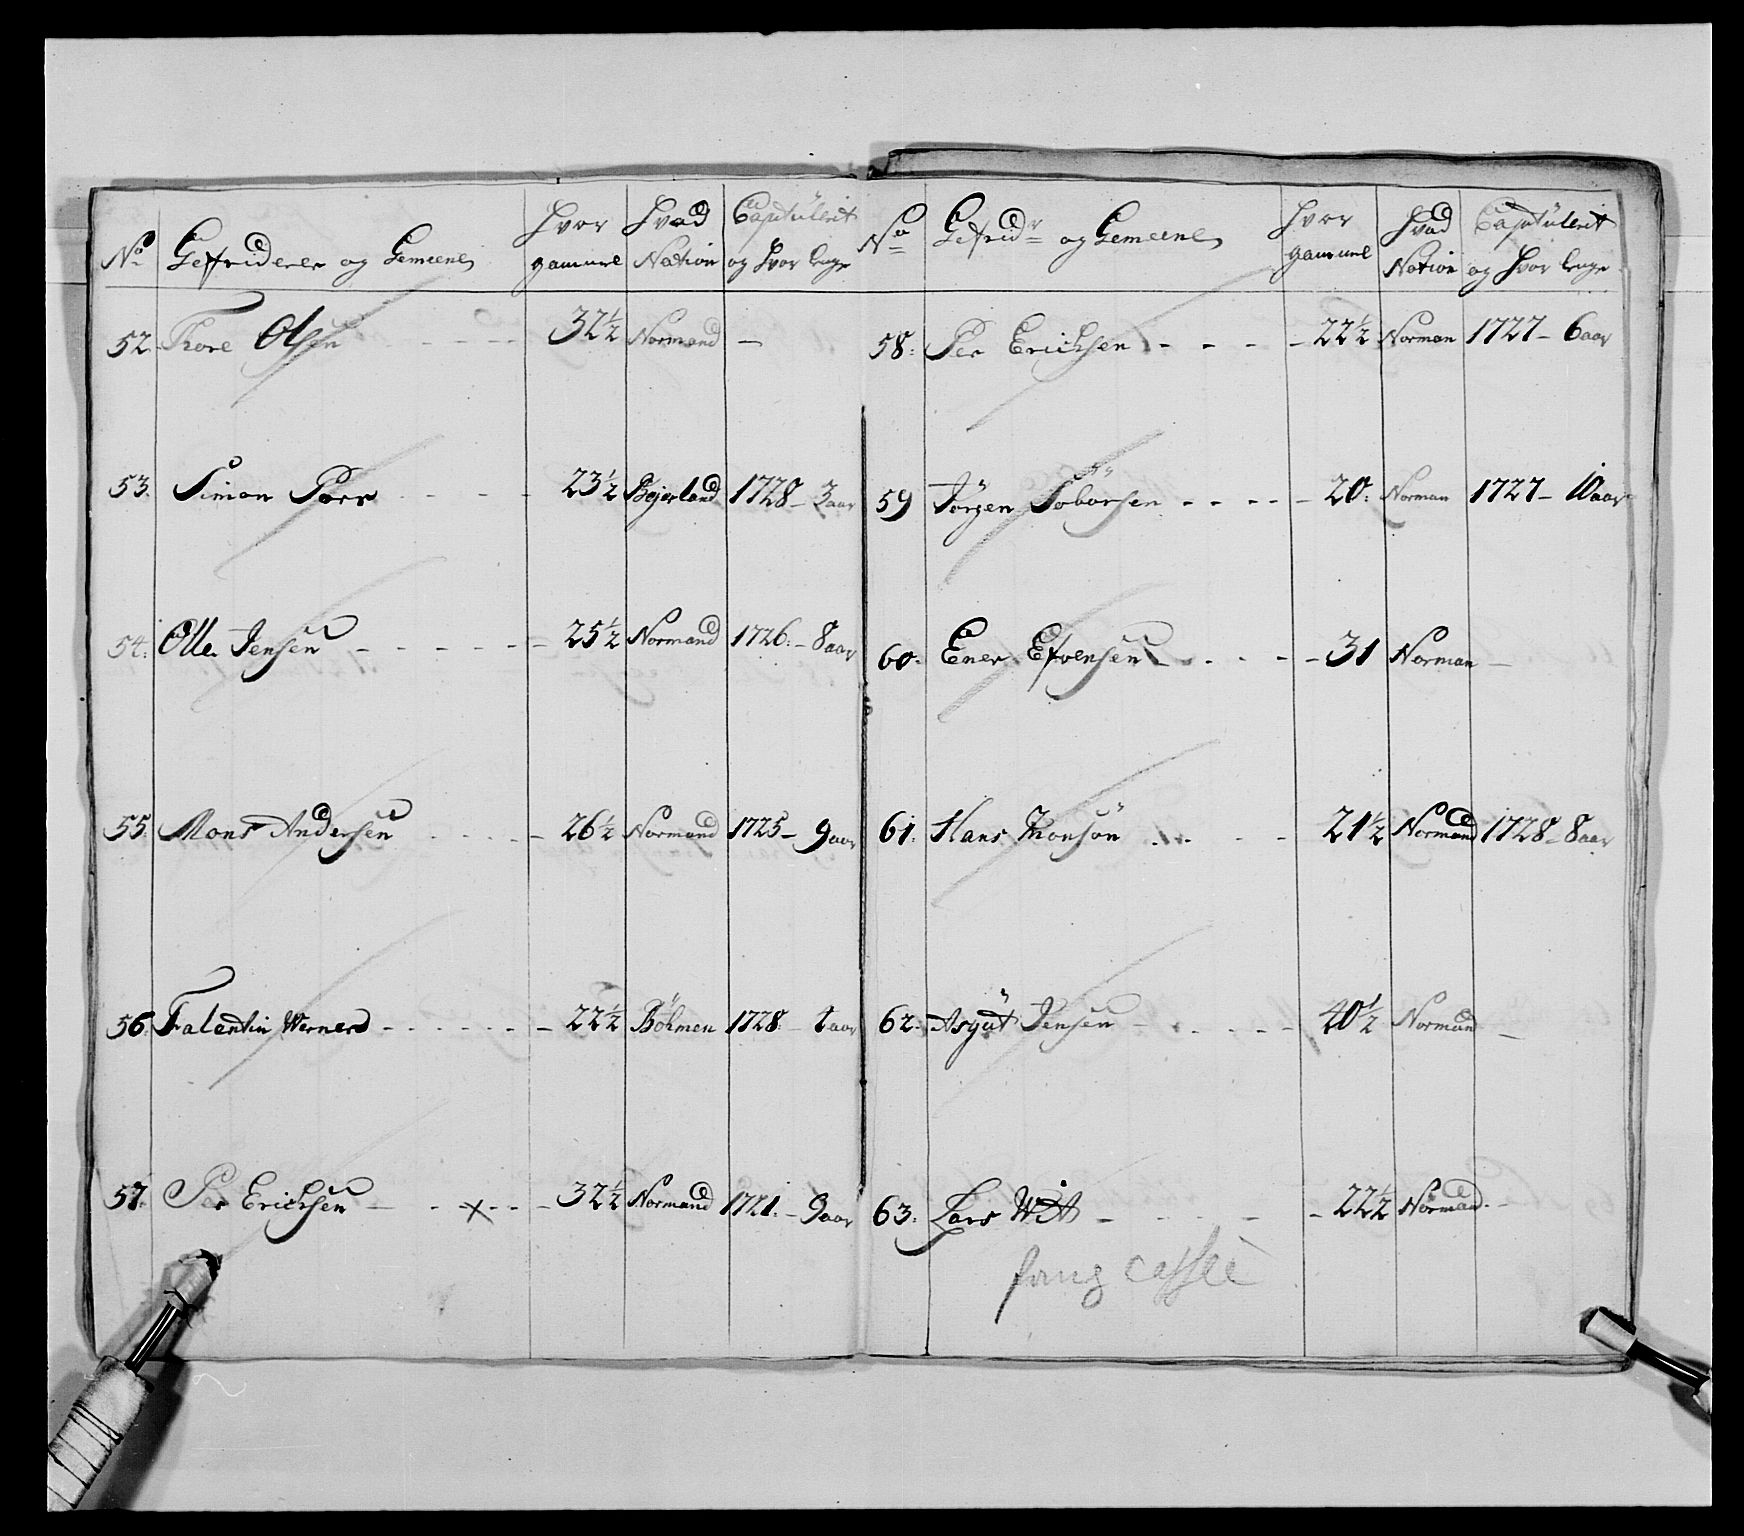 No Gefriderer og Gemeene Hvor gammel Hvad Nation Captülerit og Hvor lenge
52. Thore Olsen 32½ Normand —
53. Simon Parr 23½ Bejerland 1728 – 3 aar
54. Olle Jensen 25½ Normand 1726. – 8 aar
55. Mons Andersen 26½ Normand 1725 – 9 aar
56. Falentin Werner 22½ Böhmen 1728 – 1 aar
57. Per Erichsen × 32½ Normand 1721. – 9 aar
No Gefridr og Gemeene Hvor gammel Hvad Nation Captülerit og Hvor lenge
58. Per Erichsen 22½ Norman 1727 – 6 aar
59 Jörgen Toborsen 20. Norman 1727 – 10 aar
60. Ener Efvensen 31 Norman —
61. Hans Thonsön 21½ Normand 1728 – 8 aar
62. Asgüt Jensen 40½ Normand —
63. Lars Wit 22½ Normand. –